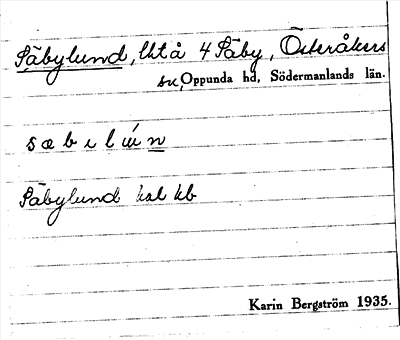 Säbylund, lht å 4 Säby, Österåkers
sn, Oppunda hd, Södermanlands län.
sæbɩlún
Säbylund hsl kb
Karin Bergström 1935.